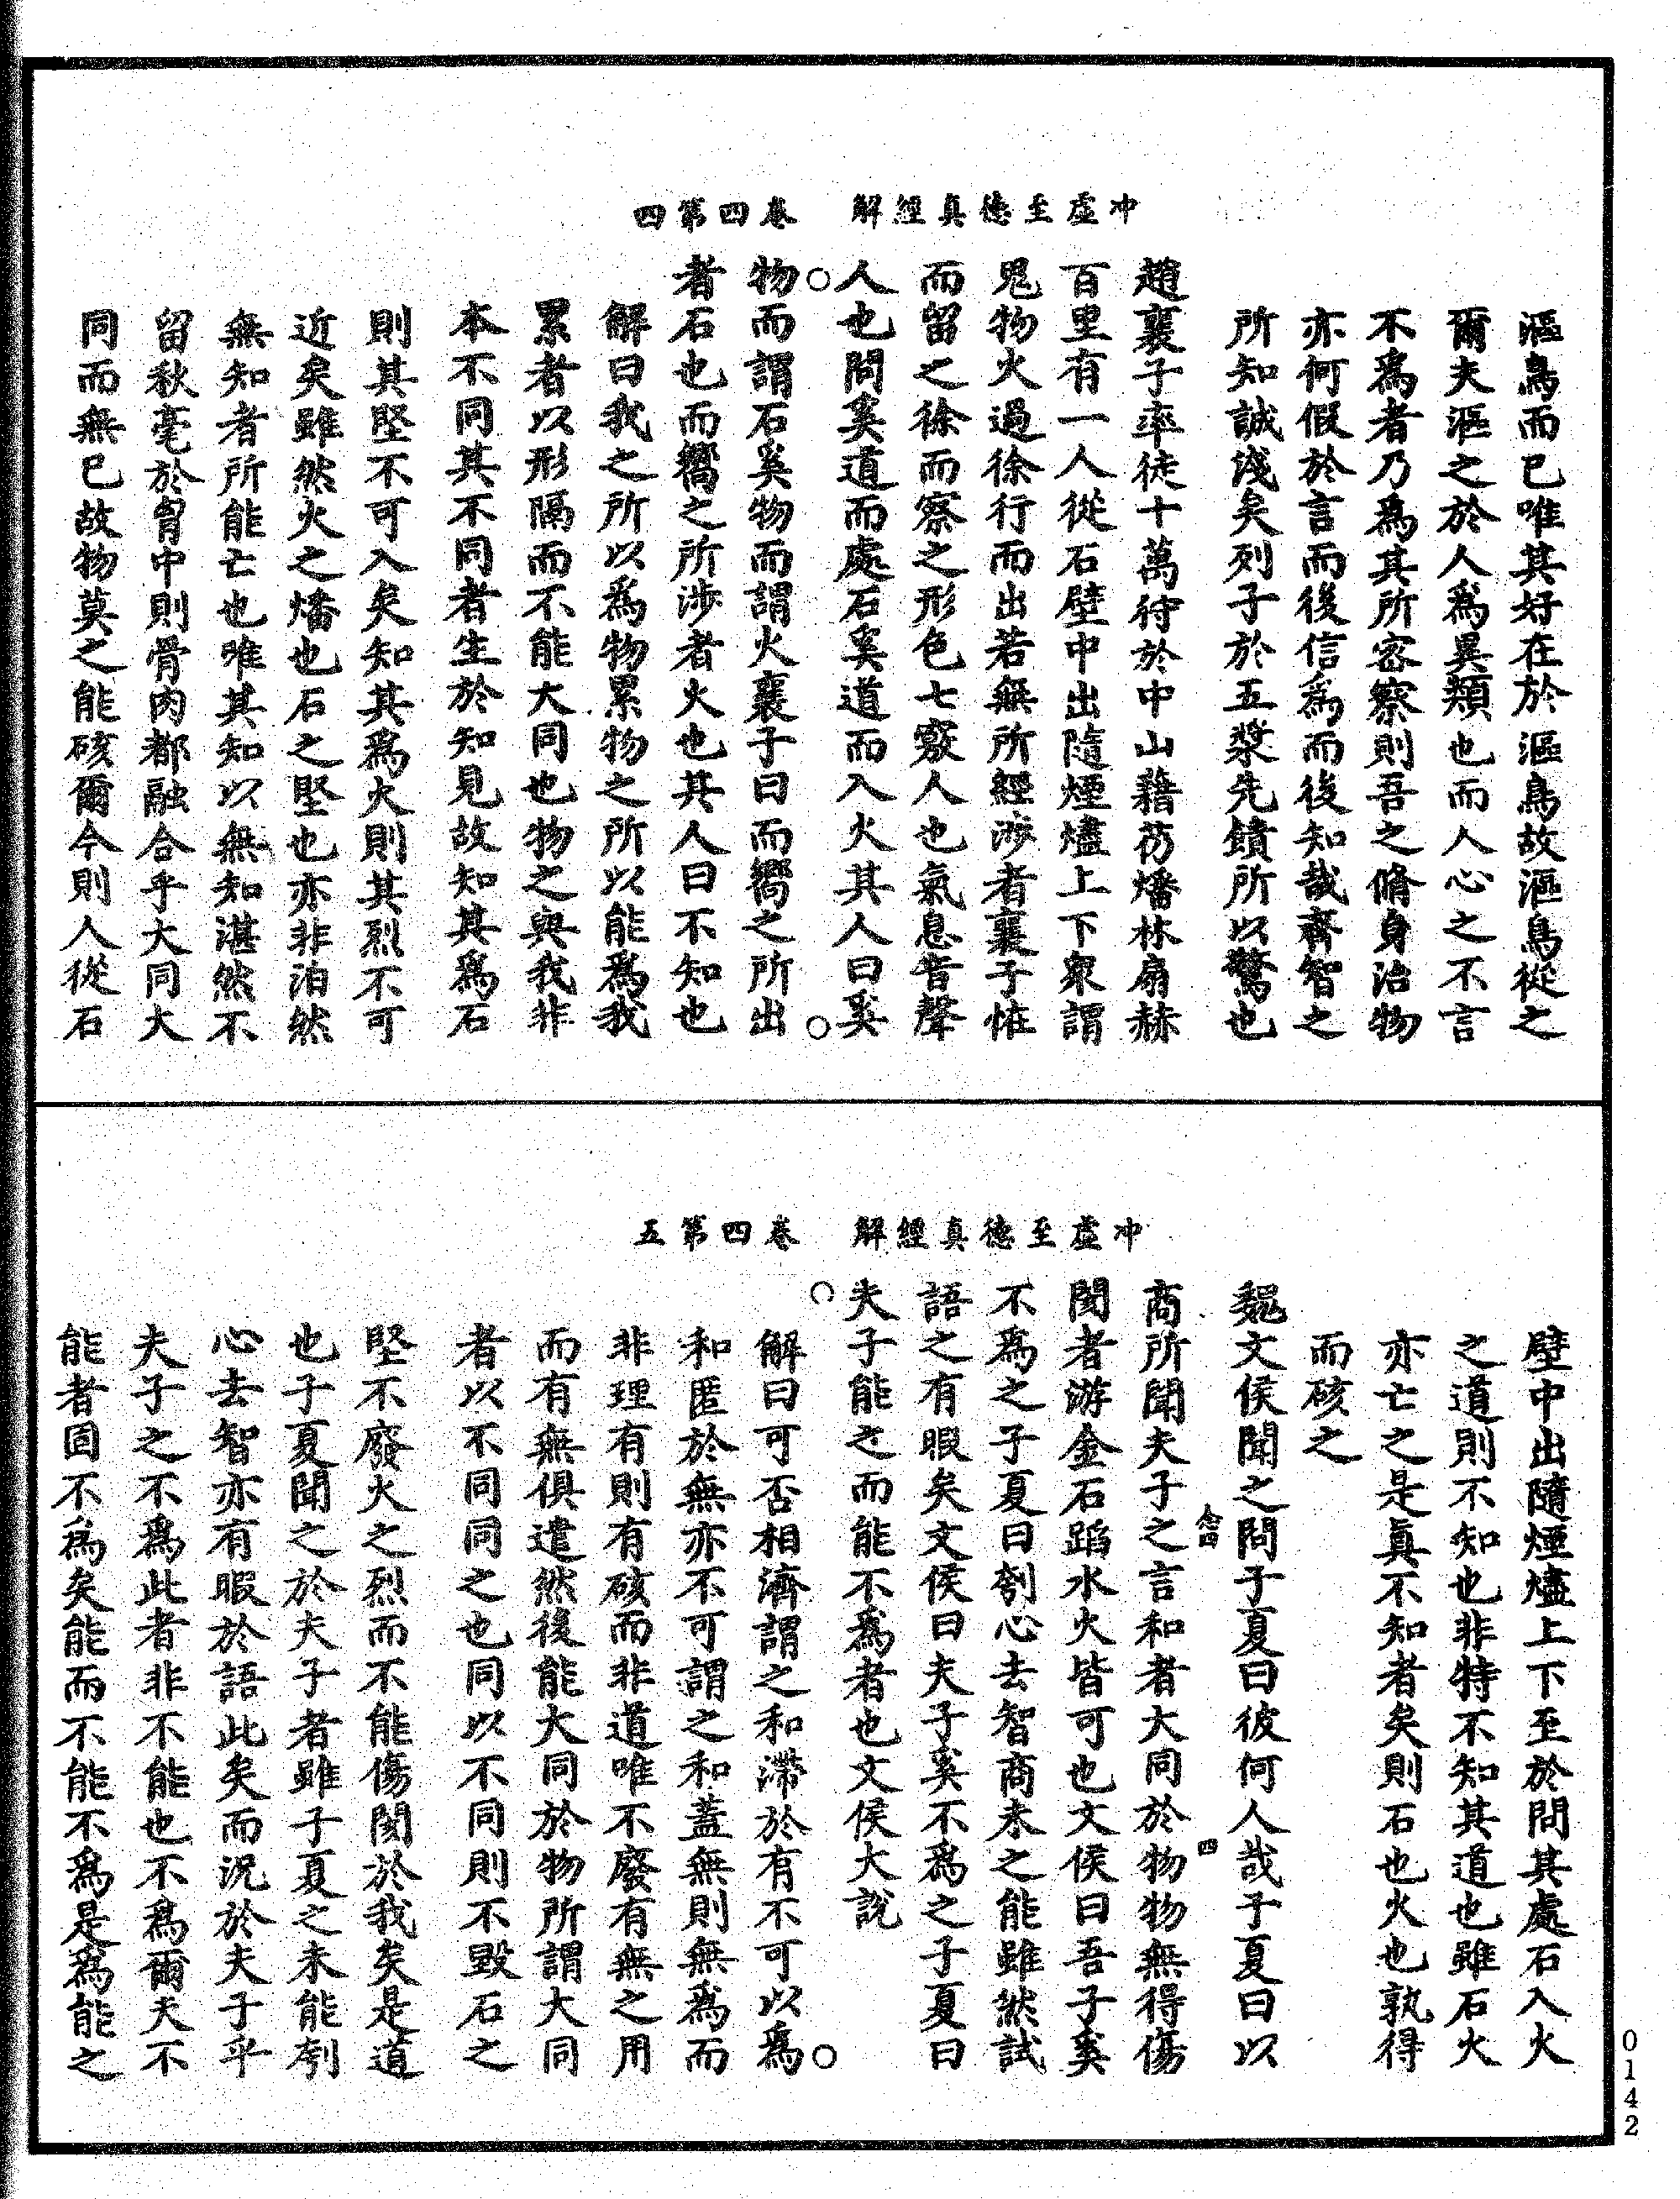 冲虛至德真經解　卷四第四
漚鳥而已唯其好在於漚鳥故漚鳥從之
爾夫漚之於人為異類也而人心之不言
不為者乃為其所密察則吾之脩身治物
亦何假於言而後信為而後知哉齊智之
所知誠淺矣列子於五漿先饋所以驚也
趙襄子率徒十萬狩於中山藉芿燔林扇赫
百里有一人從石壁中出隨煙燼上下衆謂
鬼物火過徐行而出若無所經涉者襄子恠
而留之徐而察之形色七竅人也氣息音聲
人也問奚道而處石奚道而入火其人曰奚
物而謂石奚物而謂火襄子曰而嚮之所出
者石也而嚮之所涉者火也其人曰不知也
解曰我之所以為物累物之所以能為我
累者以形隔而不能大同也物之與我非
本不同其不同者生於知見故知其為石
則其堅不可入矣知其為火則其烈不可
近矣雖然火之燔也石之堅也亦非泊然
無知者所能亡也唯其知以無知湛然不
留秋毫於胷中則骨肉都融合乎大同大
同而無已故物莫之能硋爾今則人從石
冲虛至德真經解　卷四第五
壁中出隨煙燼上下至於問其處石入火
之道則不知也非特不知其道也雖石火
亦亡之是真不知者矣則石也火也孰得
而硋之
魏文侯聞之問子夏曰彼何人哉子夏曰以
商所聞夫子之言和者大同於物物無得傷
閡者游金石蹈水火皆可也文侯曰吾子奚
不為之子夏曰刳心去智商未之能雖然試
語之有暇矣文侯曰夫子奚不為之子夏曰
夫子能之而能不為者也文侯大說
解曰可否相濟謂之和滯於有不可以為
和匿於無亦不可謂之和蓋無則無為而
非理有則有硋而非道唯不廢有無之用
而有無俱遣然後能大同於物所謂大同
者以不同同之也同以不同則不毀石之
堅不廢火之烈而不能傷閡於我矣是道
也子夏聞之於夫子者雖子夏之未能刳
心去智亦有暇於語此矣而況於夫子乎
夫子之不為此者非不能也不為爾夫不
能者固不為矣能而不能不為是為能之
四
0142